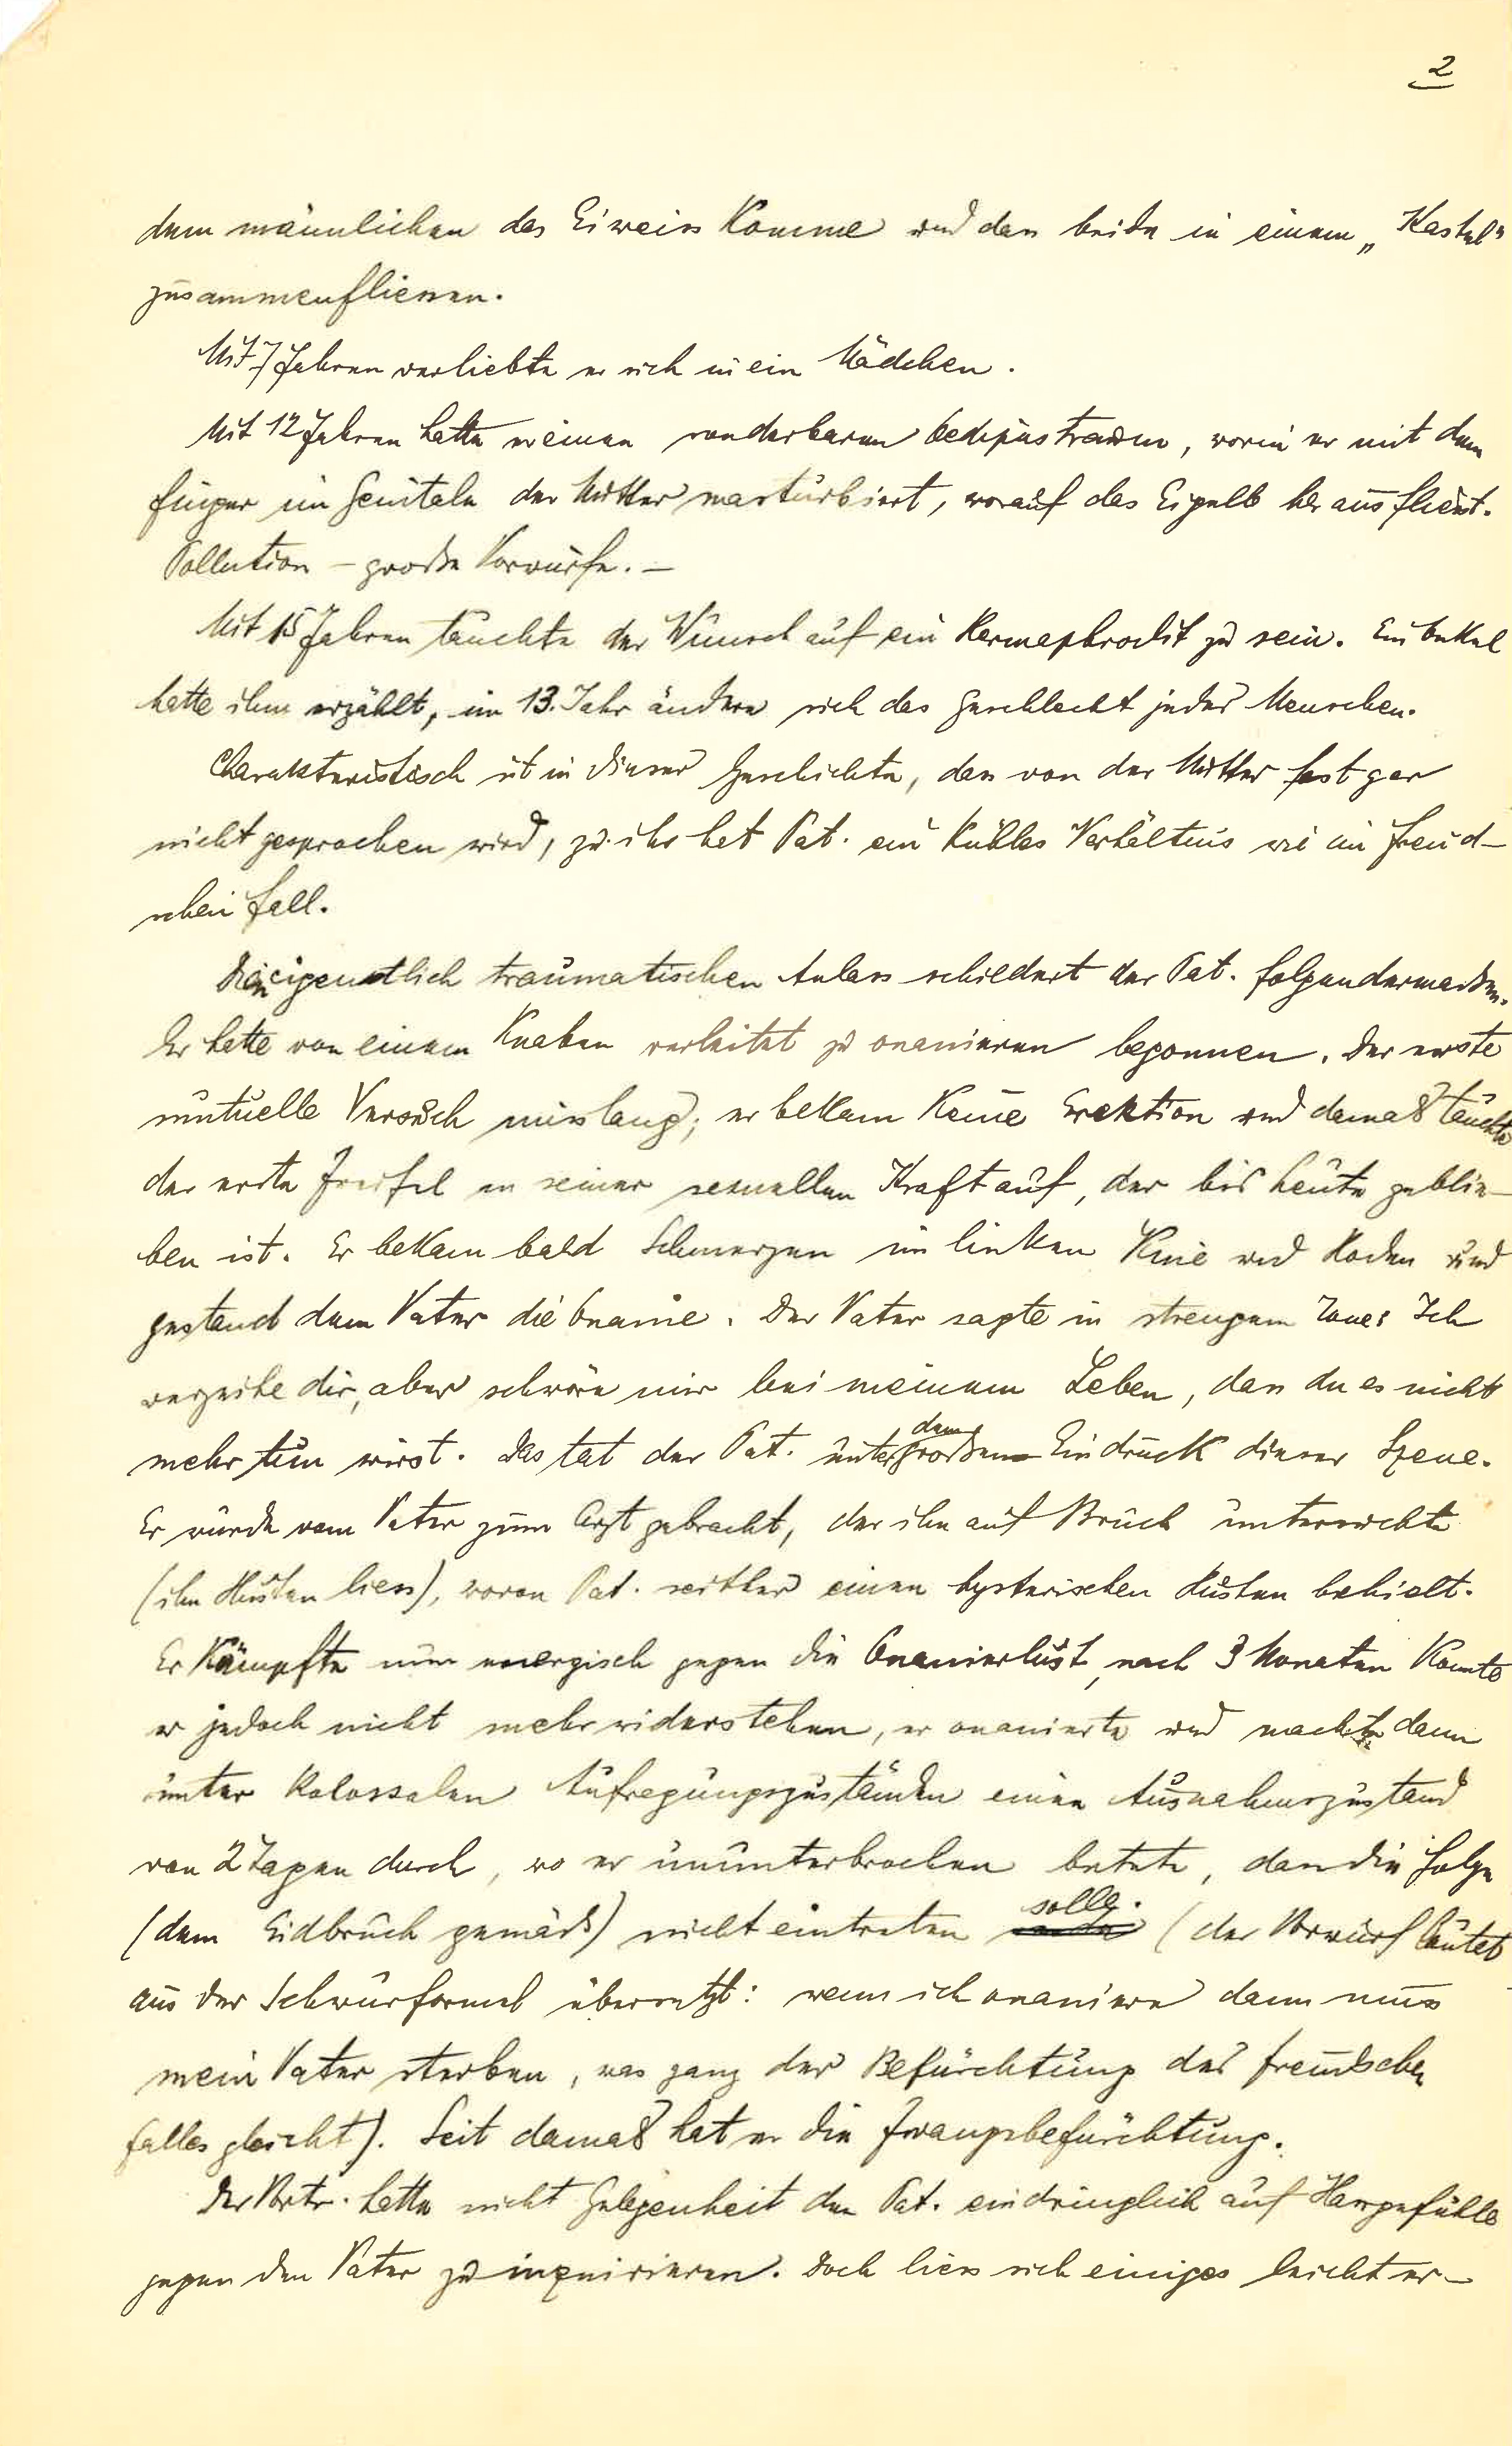 2
dem männlichen das Eiweiss komme und dass beide in einem „Kastel"
zusammenfliessen.
Mit 7 Jahren verliebte er sich in ein Mädchen.
Mit 12 Jahren hatte er einen sonderbaren Oedipustraum, worin er mit dem
Finger im Genitale der Mutter masturbiert, worauf das Eigelb herausfliesst.
Pollution – große Vorwürfe. –
Mit 15 Jahren tauchte der Wunsch auf ein Hermaphrodit zu sein. Ein Onkel
hatte ihm erzählt, im 13. Jahr ändere sich das Geschlecht jedes Menschen.
Charakteristisch ist in dieser Geschichte, dass von der Mutter fast gar
nicht gesprochen wird, zu ihr hat Pat. ein kühles Verhältnis wie im Freud-
schen Fall.
Den eigentlich traumatischen Anlass schildert der Pat. folgendermaßen.
Er hatte von einem Knaben verleitet zu onanieren begonnen. Der erste
mutuelle Versuch misslang; er bekam keine Erektion und damals tauchte
der erste Zweifel an seiner sexuellen Kraft auf, der bis heute geblie-
ben ist. Er bekam bald Schmerzen im linken Knie und Hoden und
gestand dem Vater die Onanie. Der Vater sagte in strengem Tone: Ich
verzeihe dir, aber schwöre mir bei meinem Leben, dass du es nicht
mehr tun wirst. Das tat der Pat. unter dem großen Eindruck dieser Szene.
Er wurde vom Vater zum Arzt gebracht, der ihn auf Bruch untersuchte
(ihn Husten liess), wovon Pat. seither einen hysterischen Husten behielt.
Er kämpfte nun energisch gegen die Onanierlust, nach 3 Monaten konnte
er jedoch nicht mehr widerstehen, er onanierte und machte dann
unter kolossalen Aufregungszuständen einen Ausnahmszustand
von 2 Tagen durch, wo er ununterbrochen betete, dass die Folge
(dem Eidbruch gemäß) nicht eintreten solle. (der Vorwurf lautet
aus der Schwurformel übersetzt: wenn ich onaniere dann muss
mein Vater sterben, was ganz der Befürchtung des Freudschen
Falles gleicht). Seit damals hat er die Zwangsbefürchtung.
Der Vortr. hatte nicht Gelegenheit den Pat. eindringlich auf Hassgefühle
gegen den Vater zu inquirieren. Doch liess sich einiges leicht er-